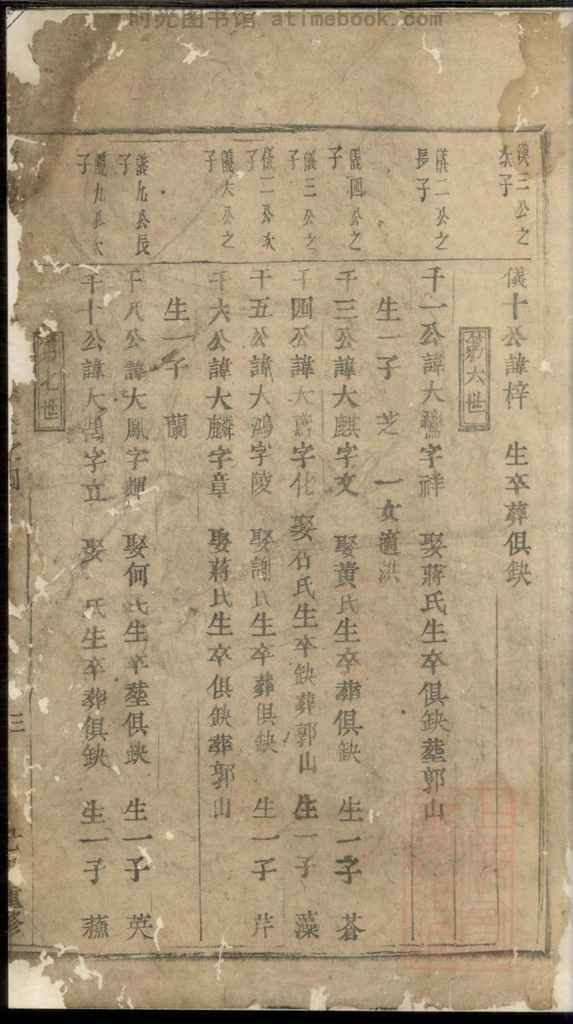 时光图书馆 atimebook.com
三公之
次子
儀十公諱梓 生卒葬俱缺
第六世
儀二公之
長子
千一公諱大鸞字祥 娶蔣氏生卒俱缺葬郭山
生一子 芝 一女適洪
儀四公之
子
千三公諱大麒字文 娶黄氏生卒葬俱缺 生一子 蒼
儀三公之
子
千四公諱大 字化 娶石氏生卒缺葬郭山 生一子 藻
儀二公次
子
千五公諱大鴻字陵 娶謝氏生卒葬俱缺 生一子 芹
儀六公之
子
千六公諱大麟字章 娶蔣氏生卒俱缺葬郭山
生一子 蘭
儀九公長
子
千八公諱大鳳字輝 娶何氏生卒塟俱缺 生一子 英
儀九公次
子
千十公諱大鵠字立 娶 氏生卒葬俱缺 生一子 蘓
第七世
三
重修